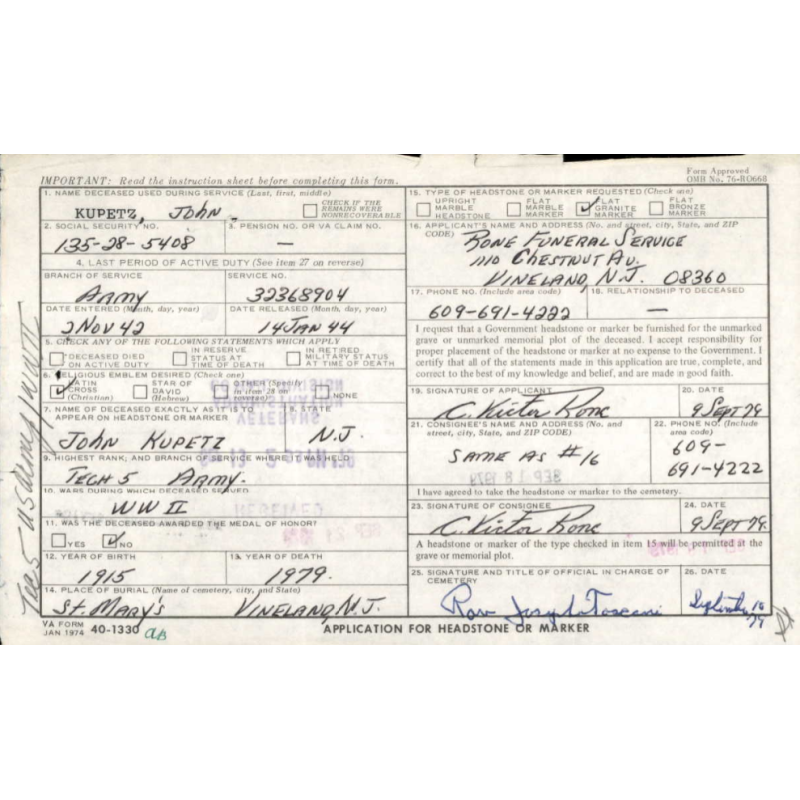 IMPORTANT: Read the instruction sheet before completing this form.
Form Approved
OMB No. 76-RO668
1. NAME DECEASED USED DURING SERVICE (Last, first, middle)
KUPETZ, JOHN
CHECK IF THE REMAINS WERE NONRECOVERABLE
2. SOCIAL SECURITY NO.
135-28-5408
3. PENSION NO. OR VA CLAIM NO.
—
4. LAST PERIOD OF ACTIVE DUTY (See item 27 on reverse)
BRANCH OF SERVICE
ARMY
SERVICE NO.
32368904
DATE ENTERED (Month, day, year)
2 NOV 42
DATE RELEASED (Month, day, year)
14 JAN 44
5. CHECK ANY OF THE FOLLOWING STATEMENTS WHICH APPLY
DECEASED DIED ON ACTIVE DUTY
IN RESERVE STATUS AT TIME OF DEATH
IN RETIRED MILITARY STATUS AT TIME OF DEATH
6. RELIGIOUS EMBLEM DESIRED (Check one)
LATIN CROSS (Christian)
STAR OF DAVID (Hebrew)
OTHER (Specify in item 28 on reverse)
NONE
7. NAME OF DECEASED EXACTLY AS IT IS TO APPEAR ON HEADSTONE OR MARKER
JOHN KUPETZ
8. STATE
N.J.
9. HIGHEST RANK, AND BRANCH OF SERVICE WHERE IT WAS HELD
TECH 5 ARMY.
10. WARS DURING WHICH DECEASED SERVED
WW II
11. WAS THE DECEASED AWARDED THE MEDAL OF HONOR?
YES
NO
12. YEAR OF BIRTH
1915
13. YEAR OF DEATH
1979.
14. PLACE OF BURIAL (Name of cemetery, city, and State)
ST. MARY'S VINELAND, N.J.
15. TYPE OF HEADSTONE OR MARKER REQUESTED (Check one)
UPRIGHT MARBLE HEADSTONE
FLAT MARBLE MARKER
FLAT GRANITE MARKER
FLAT BRONZE MARKER
16. APPLICANT'S NAME AND ADDRESS (No. and street, city, State, and ZIP CODE)
RONE FUNERAL SERVICE
1110 CHESTNUT AV.
VINELAND, N.J. 08360
17. PHONE NO. (Include area code)
609-691-4222
18. RELATIONSHIP TO DECEASED
—
I request that a Government headstone or marker be furnished for the unmarked
grave or unmarked memorial plot of the deceased. I accept responsibility for
proper placement of the headstone or marker at no expense to the Government. I
certify that all of the statements made in this application are true, complete, and
correct to the best of my knowledge and belief, and are made in good faith.
19. SIGNATURE OF APPLICANT
C. Victor Rone
20. DATE
9 SEPT 79
21. CONSIGNEE'S NAME AND ADDRESS (No. and street, city, State, and ZIP CODE)
SAME AS #16
22. PHONE NO. (Include area code)
609-
691-4222
I have agreed to take the headstone or marker to the cemetery.
23. SIGNATURE OF CONSIGNEE
C. Victor Rone
24. DATE
9 SEPT 79.
A headstone or marker of the type checked in item 15 will be permitted at the
grave or memorial plot.
25. SIGNATURE AND TITLE OF OFFICIAL IN CHARGE OF CEMETERY
Rev. Joseph Toscani
26. DATE
VA FORM
JAN 1974 40-1330
APPLICATION FOR HEADSTONE OR MARKER